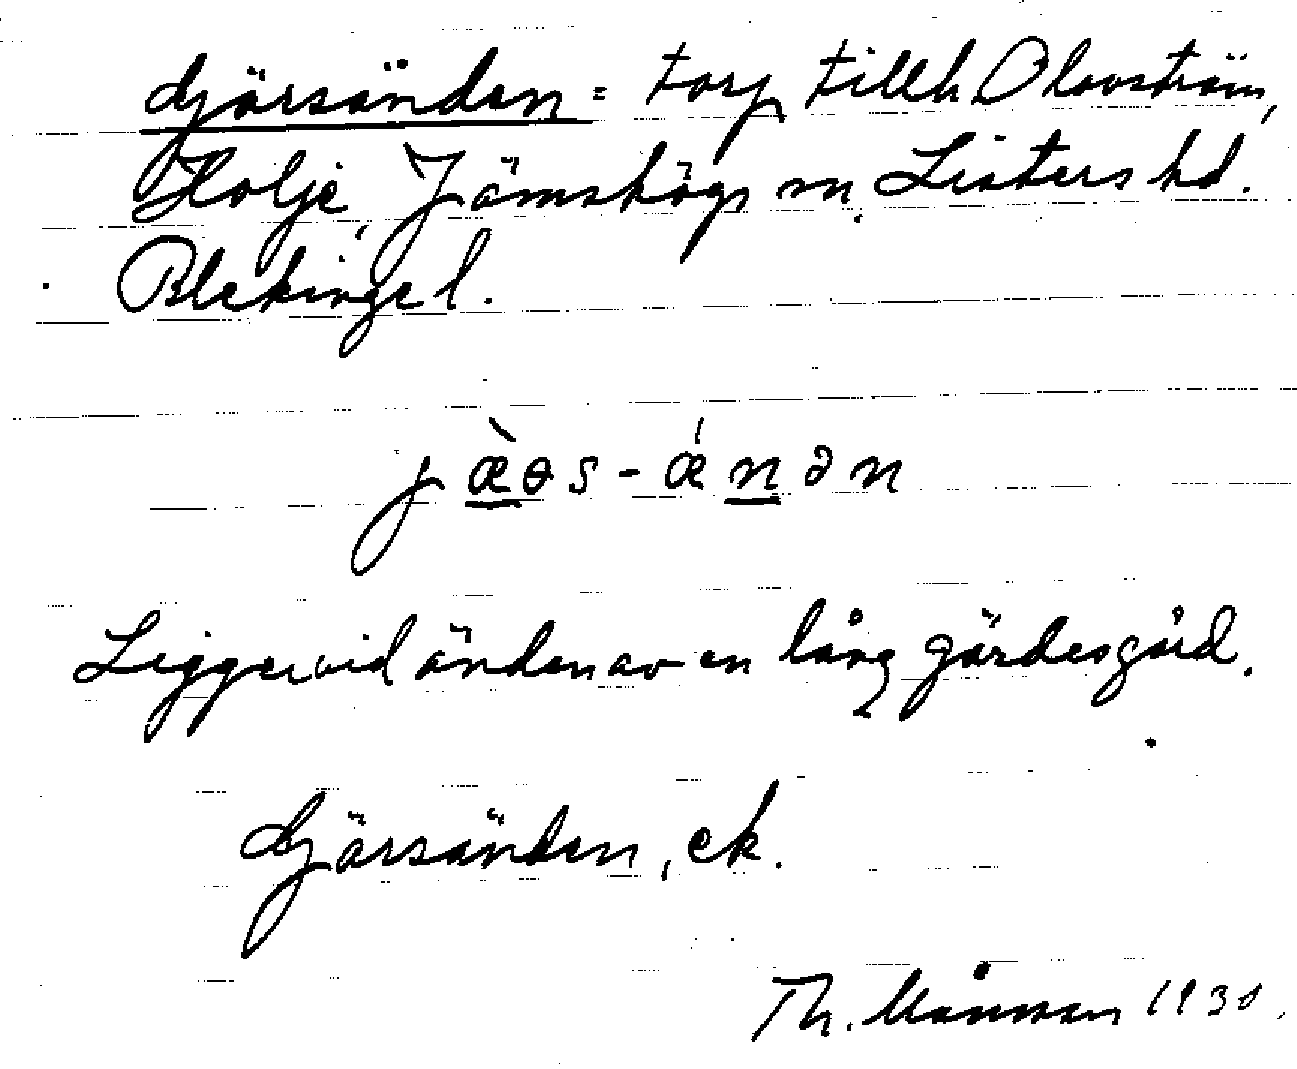 Gjärsänden = torp tillh Olovström,
Holje, Jämshögs sn, Listers hd.
Blekinge l.
j æ̀ɵs-ǽnən
Ligger vid änden av en lång gärdesgård.
Gjärsänden, ek.
Th. 1930.